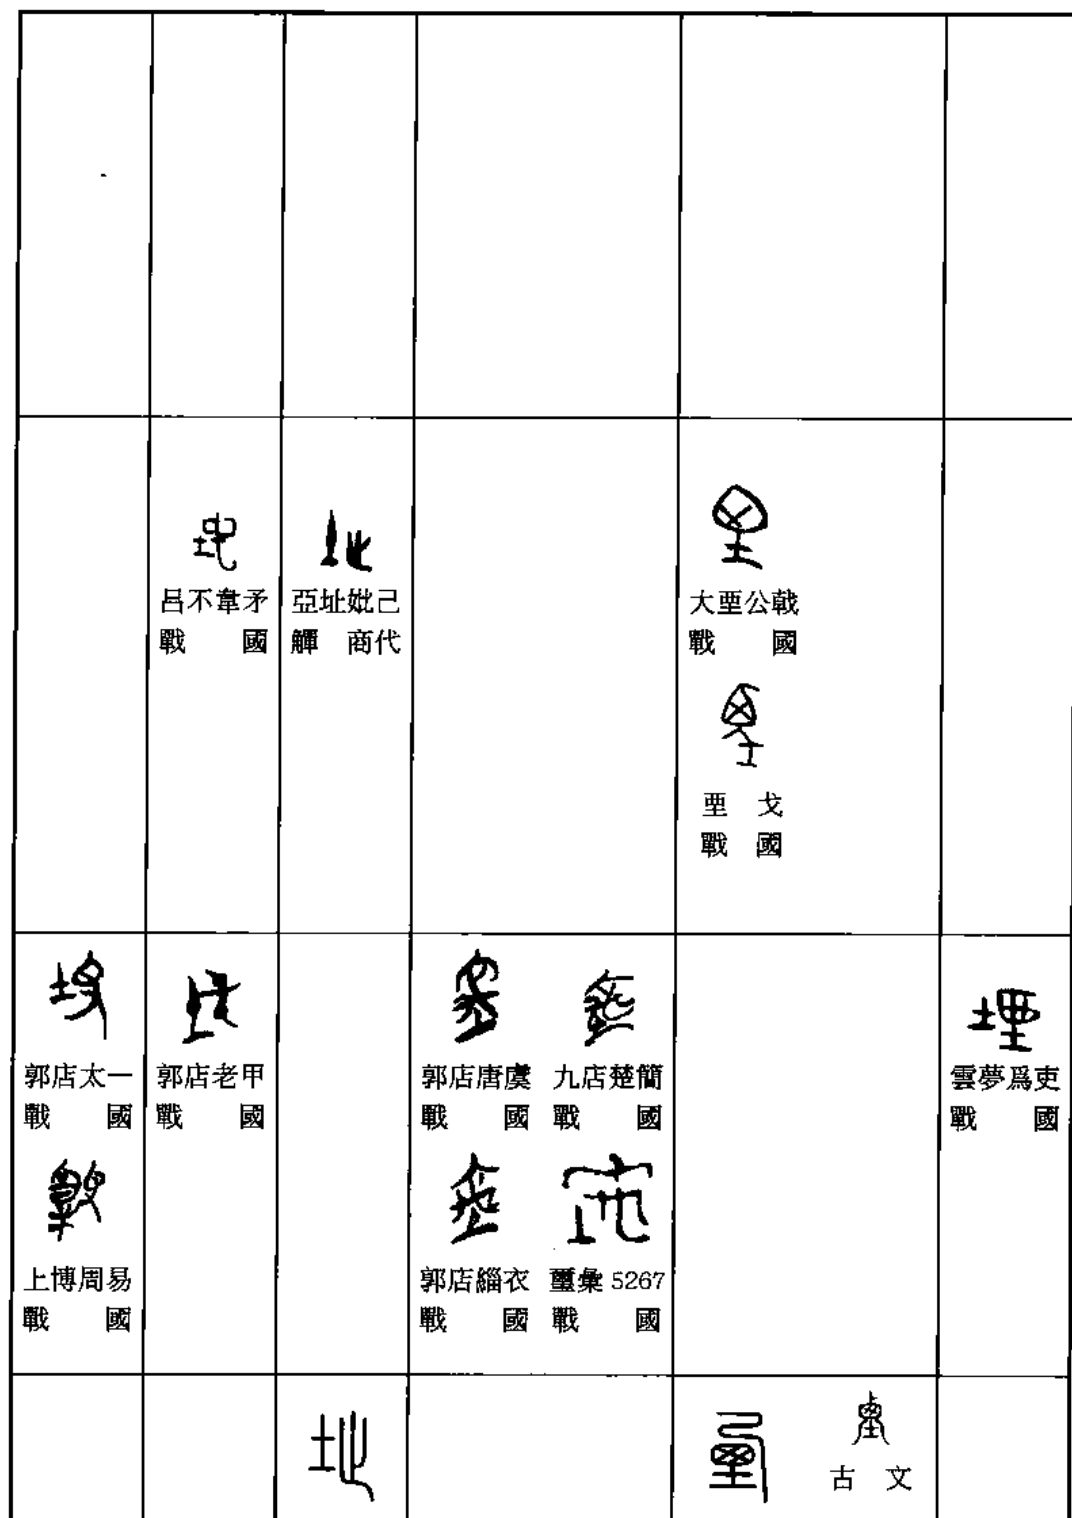 呂不韋矛
戰 國
亞址妣己
觶 商代
大垔公戟
戰 國
垔 戈
戰 國
郭店太一
戰 國
上博周易
戰 國
郭店老甲
戰 國
郭店唐虞
戰 國
九店楚簡
戰 國
郭店緇衣
戰 國
璽彙 5267
戰 國
雲夢爲吏
戰 國
古 文